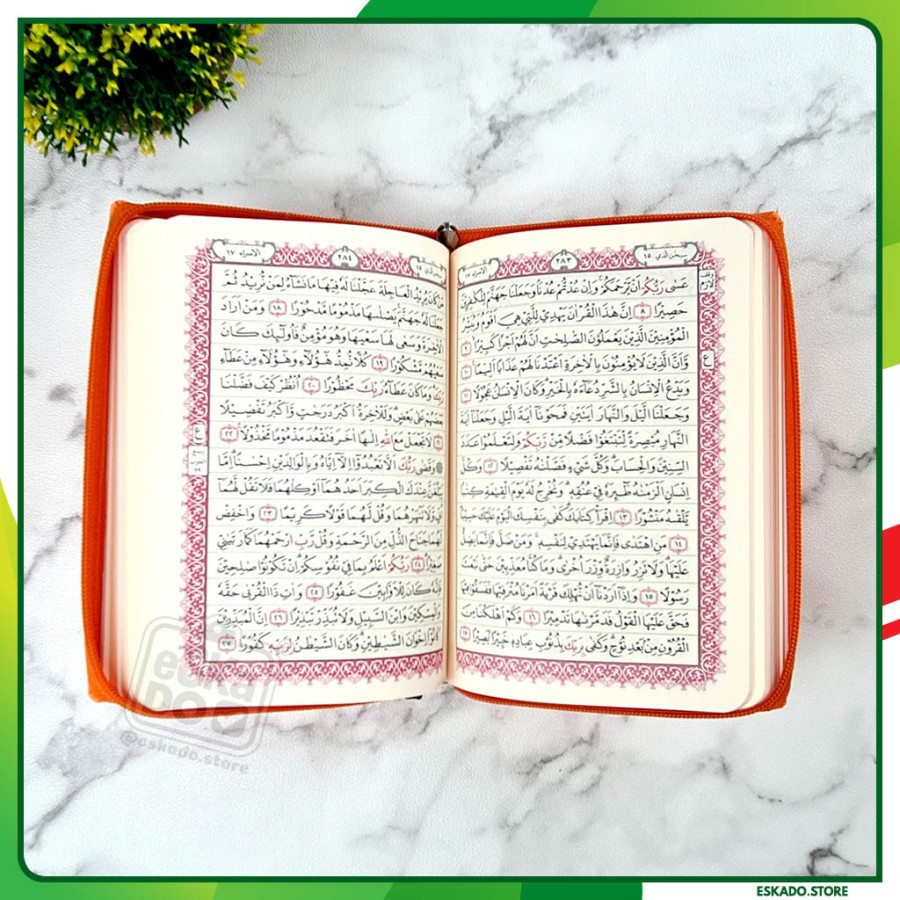 سبحن الذي ١٥
٢٨٣
الاسراء ١٧
عَسٰى رَبُّكُمْ اَنْ يَّرْحَمَكُمْ وَاِنْ عُدْتُّمْ عُدْنَا وَجَعَلْنَا جَهَنَّمَ لِلْكٰفِرِيْنَ
حَصِيْرًا ۝٨ اِنَّ هٰذَا الْقُرْاٰنَ يَهْدِيْ لِلَّتِيْ هِيَ اَقْوَمُ وَيُبَشِّرُ
الْمُؤْمِنِيْنَ الَّذِيْنَ يَعْمَلُوْنَ الصّٰلِحٰتِ اَنَّ لَهُمْ اَجْرًا كَبِيْرًا ۝٩
وَّاَنَّ الَّذِيْنَ لَا يُؤْمِنُوْنَ بِالْاٰخِرَةِ اَعْتَدْنَا لَهُمْ عَذَابًا اَلِيْمًا ۝١٠
وَيَدْعُ الْاِنْسَانُ بِالشَّرِّ دُعَاۤءَهٗ بِالْخَيْرِ وَكَانَ الْاِنْسَانُ عَجُوْلًا ۝١١
وَجَعَلْنَا الَّيْلَ وَالنَّهَارَ اٰيَتَيْنِ فَمَحَوْنَآ اٰيَةَ الَّيْلِ وَجَعَلْنَآ اٰيَةَ
النَّهَارِ مُبْصِرَةً لِّتَبْتَغُوْا فَضْلًا مِّنْ رَّبِّكُمْ وَلِتَعْلَمُوْا عَدَدَ
السِّنِيْنَ وَالْحِسَابَ وَكُلَّ شَيْءٍ فَصَّلْنٰهُ تَفْصِيْلًا ۝١٢ وَكُلَّ
اِنْسَانٍ اَلْزَمْنٰهُ طٰۤىِٕرَهٗ فِيْ عُنُقِهٖ وَنُخْرِجُ لَهٗ يَوْمَ الْقِيٰمَةِ كِتٰبًا
يَّلْقٰىهُ مَنْشُوْرًا ۝١٣ اِقْرَأْ كِتٰبَكَ كَفٰى بِنَفْسِكَ الْيَوْمَ عَلَيْكَ حَسِيْبًا
۝١٤ مَنِ اهْتَدٰى فَاِنَّمَا يَهْتَدِيْ لِنَفْسِهٖ وَمَنْ ضَلَّ فَاِنَّمَا يَضِلُّ
عَلَيْهَا وَلَا تَزِرُ وَازِرَةٌ وِّزْرَ اُخْرٰى وَمَا كُنَّا مُعَذِّبِيْنَ حَتّٰى نَبْعَثَ
رَسُوْلًا ۝١٥ وَاِذَآ اَرَدْنَآ اَنْ نُّهْلِكَ قَرْيَةً اَمَرْنَا مُتْرَفِيْهَا فَفَسَقُوْا فِيْهَا
فَحَقَّ عَلَيْهَا الْقَوْلُ فَدَمَّرْنٰهَا تَدْمِيْرًا ۝١٦ وَكَمْ اَهْلَكْنَا مِنَ
الْقُرُوْنِ مِنْۢ بَعْدِ نُوْحٍ وَكَفٰى بِرَبِّكَ بِذُنُوْبِ عِبَادِهٖ خَبِيْرًۢا بَصِيْرًا ۝١٧
سبحن الذي ١٥
٢٨٤
الاسراء ١٧
كَانَ يُرِيْدُ الْعَاجِلَةَ عَجَّلْنَا لَهٗ فِيْهَا مَا نَشَاۤءُ لِمَنْ نُّرِيْدُ ثُمَّ
جَعَلْنَا لَهٗ جَهَنَّمَ يَصْلٰىهَا مَذْمُوْمًا مَّدْحُوْرًا ۝١٨ وَمَنْ اَرَادَ
الْاٰخِرَةَ وَسَعٰى لَهَا سَعْيَهَا وَهُوَ مُؤْمِنٌ فَاُولٰۤىِٕكَ كَانَ
سَعْيُهُمْ مَّشْكُوْرًا ۝١٩ كُلًّا نُّمِدُّ هٰٓؤُلَاۤءِ وَهٰٓؤُلَاۤءِ مِنْ عَطَاۤءِ
رَبِّكَ وَمَا كَانَ عَطَاۤءُ رَبِّكَ مَحْظُوْرًا ۝٢٠ اُنْظُرْ كَيْفَ فَضَّلْنَا
بَعْضَهُمْ عَلٰى بَعْضٍ وَلَلْاٰخِرَةُ اَكْبَرُ دَرَجٰتٍ وَّاَكْبَرُ تَفْضِيْلًا
۝٢١ لَا تَجْعَلْ مَعَ اللّٰهِ اِلٰهًا اٰخَرَ فَتَقْعُدَ مَذْمُوْمًا مَّخْذُوْلًا ۝٢٢
وَقَضٰى رَبُّكَ اَلَّا تَعْبُدُوْٓا اِلَّآ اِيَّاهُ وَبِالْوَالِدَيْنِ اِحْسٰنًا اِمَّا
يَبْلُغَنَّ عِنْدَكَ الْكِبَرَ اَحَدُهُمَآ اَوْ كِلٰهُمَا فَلَا تَقُلْ لَّهُمَآ
اُفٍّ وَّلَا تَنْهَرْهُمَا وَقُلْ لَّهُمَا قَوْلًا كَرِيْمًا ۝٢٣ وَاخْفِضْ
لَهُمَا جَنَاحَ الذُّلِّ مِنَ الرَّحْمَةِ وَقُلْ رَّبِّ ارْحَمْهُمَا كَمَا رَبَّيٰنِيْ
صَغِيْرًا ۝٢٤ رَبُّكُمْ اَعْلَمُ بِمَا فِيْ نُفُوْسِكُمْ اِنْ تَكُوْنُوْا صٰلِحِيْنَ
فَاِنَّهٗ كَانَ لِلْاَوَّابِيْنَ غَفُوْرًا ۝٢٥ وَاٰتِ ذَا الْقُرْبٰى حَقَّهٗ
وَالْمِسْكِيْنَ وَابْنَ السَّبِيْلِ وَلَا تُبَذِّرْ تَبْذِيْرًا ۝٢٦ اِنَّ الْمُبَذِّرِيْنَ
كَانُوْٓا اِخْوَانَ الشَّيٰطِيْنِ وَكَانَ الشَّيْطٰنُ لِرَبِّهٖ كَفُوْرًا ۝٢٧
eska
DO
@eskado.store
ESKADO.STORE